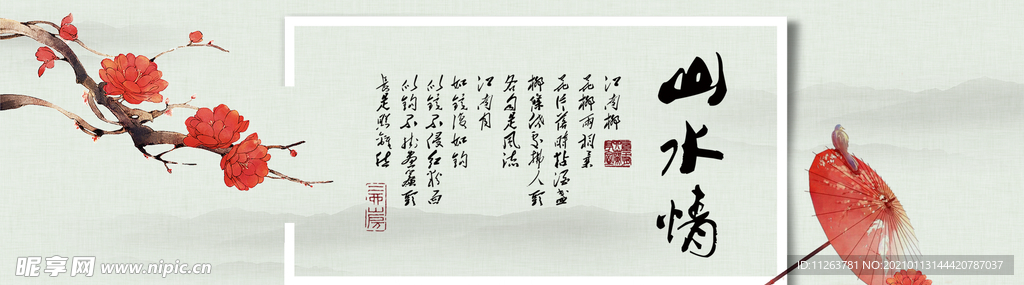 山水情
江南柳
花柳兩相柔
花片落時粘酒盞
柳條低處拂人頭
各自是風流
江南月
如鏡復如鈎
似鏡不侵紅粉面
似鈎不掛畫簾頭
長是照離愁
昵享网 www.nipic.cn
ID:11263781 NO:20210113144420787037